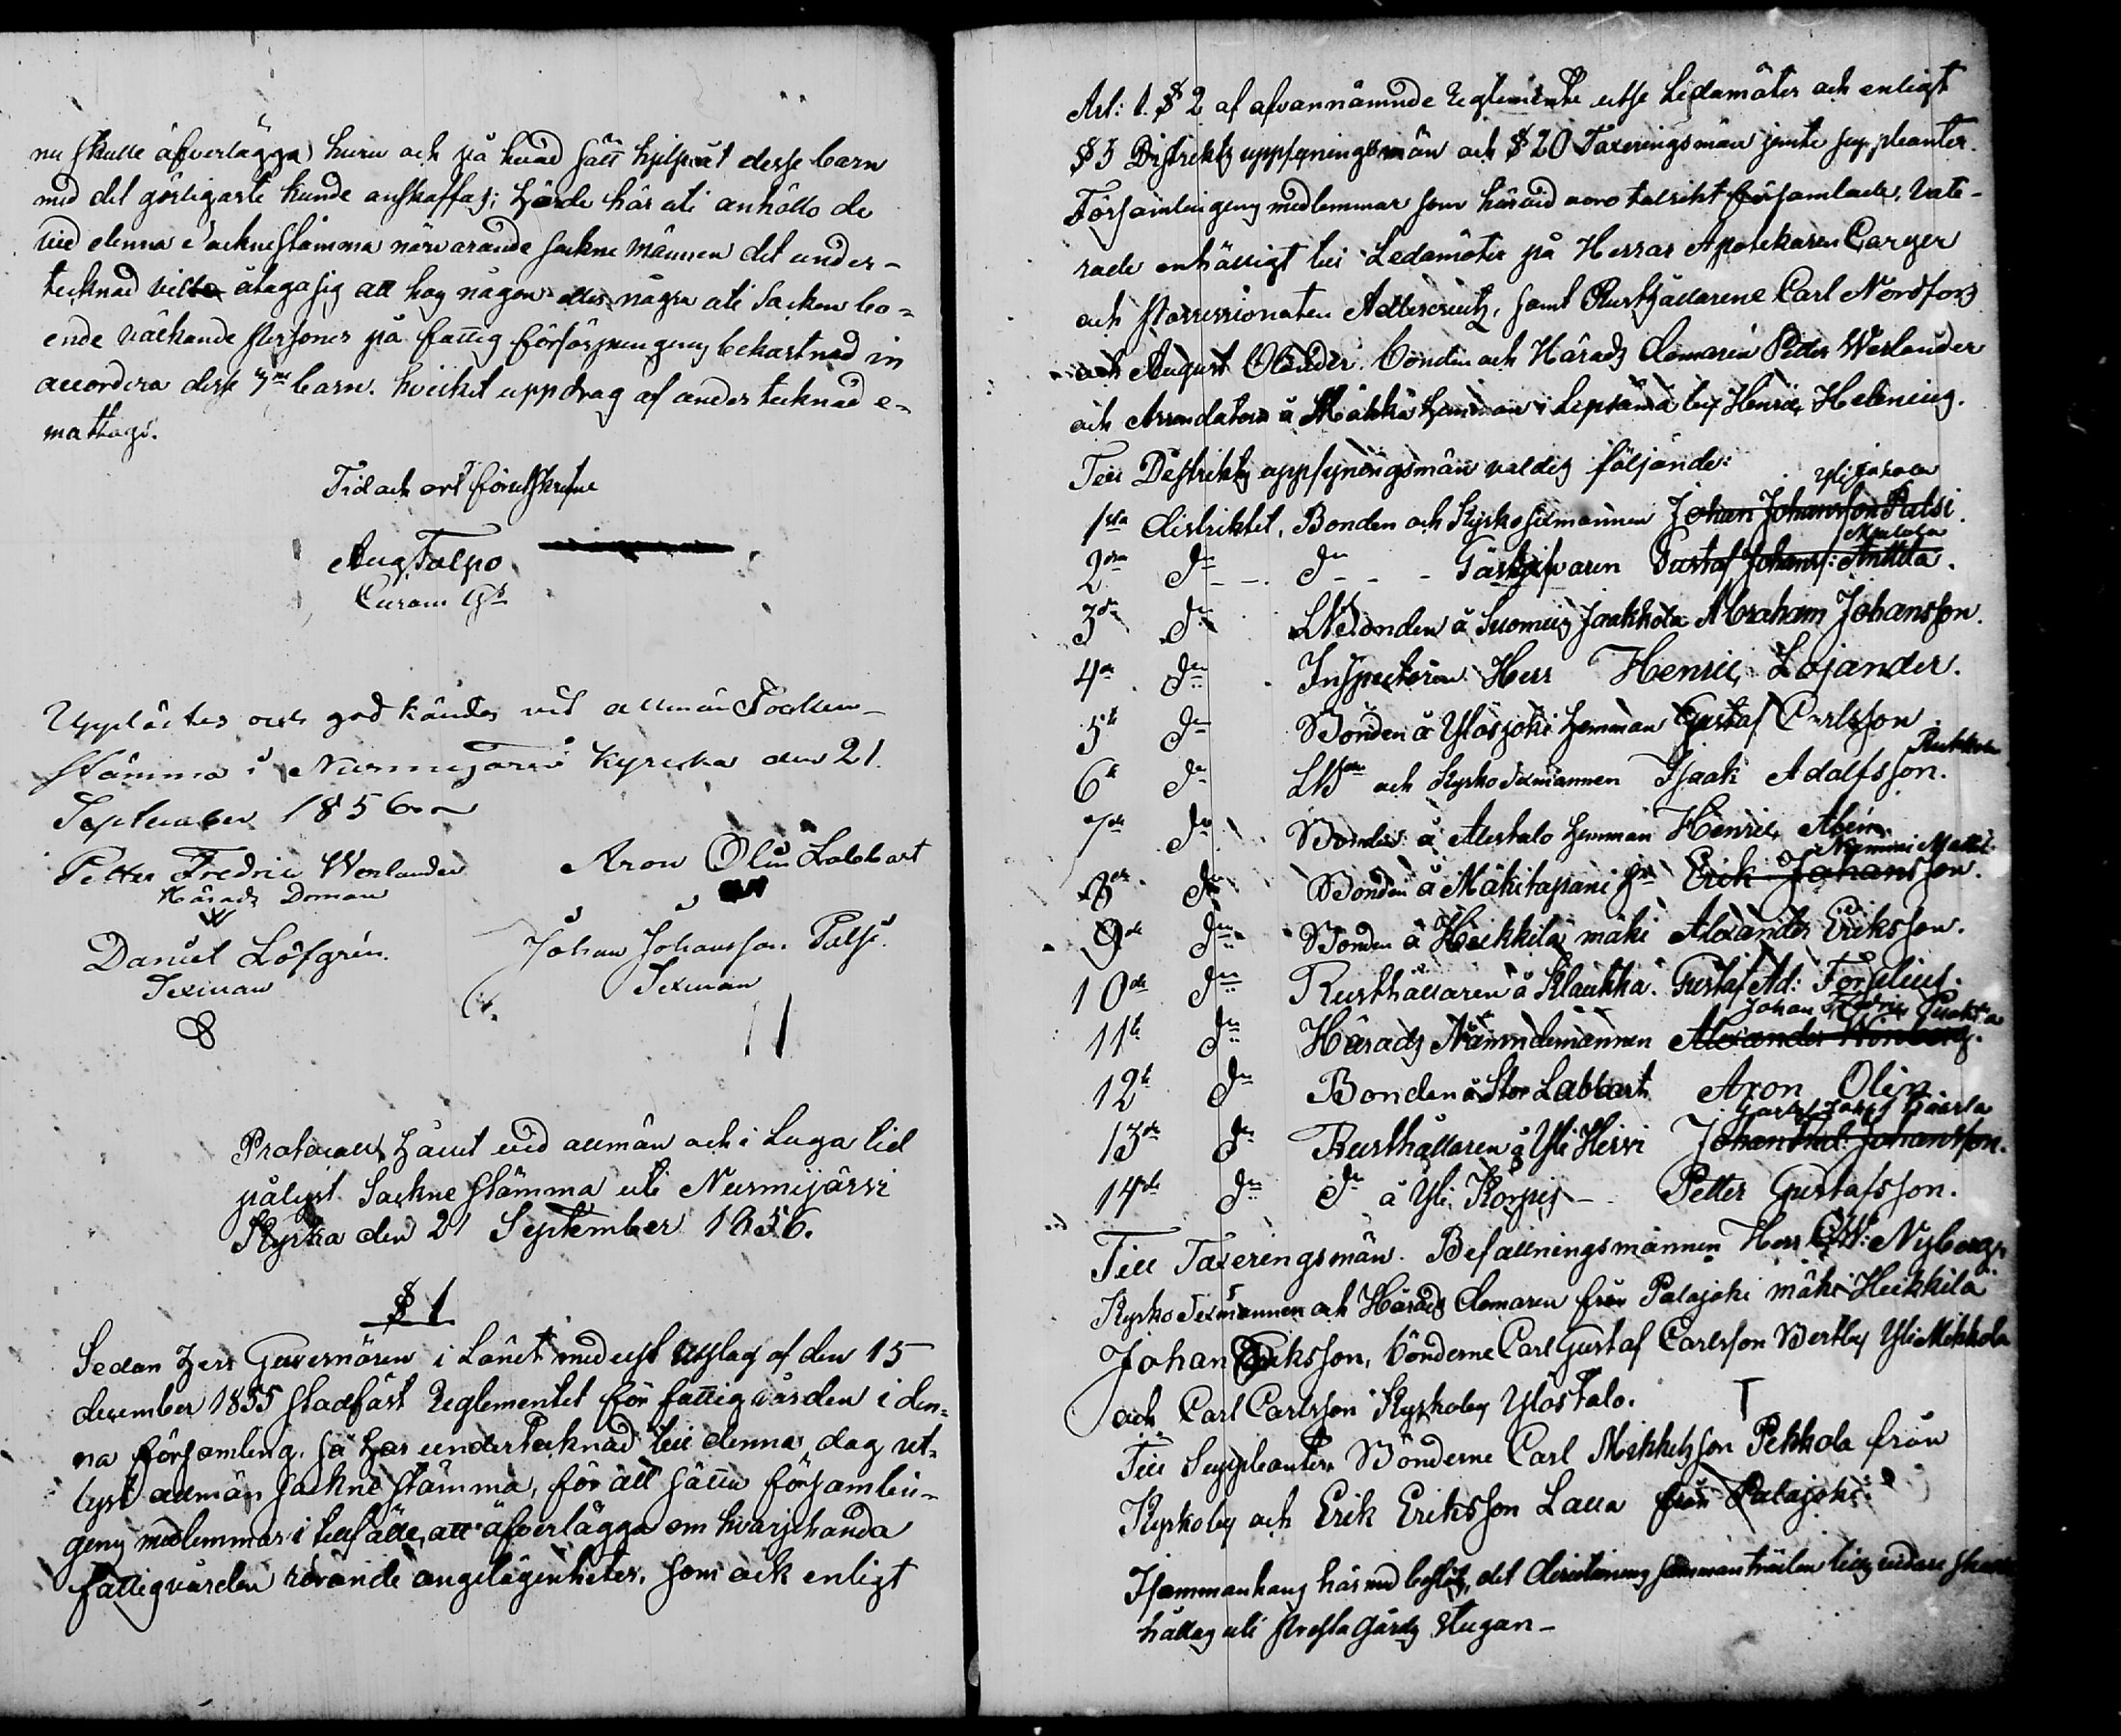 nu skulle öfverlägga huru och på hvad sätt hjelp åt desse barn
med det görligaste kunde anskaffas; Härde här uti anhöllo de
vid denna Sockne Stämma närvarande Sockne männen det under-
tecknad ville åtaga sig att hos någon eller några uti Socken bo-
ende välkände personer på fattig försörjningens bekostnad in
accordera desse 3ne barn. hvilket uppdrag af undertecknad e-
mottogs.
Tid och ort förutskrifne
Aug Talpo
Upplästes och godkändes vid allmän Socken-
stämma i Nurmijärvi Kyrcka den 21.
September 1856
Petter Fredric Werlander
Härads Doman
Aron Olin Labbart
Daniel Löfgrén.
Sexman
Johan Johansson Palsi.
Sexman
Protocoll, hållit vid allmän och i Laga tid
pålyst Sockne Stämma uti Nurmijärvi
Kyrka den 21 September 1856.
§ 1
Sedan Herr Guvernören i Länet medelst Utslag af den 15
december 1855 stadfäst Reglementet för fattigvården i den-
na församling, så har undertecknad till denna dag ut-
lyst allmän Sockne Stämma, för att sätta församlin-
gens medlemmar i tillfälle, att öfverlägga om hvarjehanda
fattigvården rörande angelägenheter, som ock enligt
Art: 1. § 2 af ofvannämnde Reglemente utse Ledamöter och enligt
§ 3 Distrikts uppsyningsmän och § 20 Taxeringsmän jemte suppleanter.
Församlingens medlemmar som härvid voro talrikt församlade, vote-
rade enhälligt till Ledamöter på Herrar Apotekaren Carger
och Possessionaten Adlercreutz, samt Rusthållarene Carl Nordfors
och August Olander. Bonden och Härads domaren Petter Werlander
och Arrendatorn å Mäkkä hemman i Lepsämä by Henric Helening.
Till Distrikts uppsyningsmän valdes följande:
Yli Jaxola
1sta distriktet, Bonden och Kyrko sexmannen Johan Johansson Palsi.
2dra do do Gästgifvaren Gustaf Johans: Anttila.
3de do Bonden å Suomies Jaakkola Abraham Johansson.
4de do Inspectoren Herr Henric Lojander.
5te do Bonden å Ylösjoki hemman Gustaf Carlsson
6te do och Kyrko Sexmannen Isaak Adolfsson.
7de do Bonden å Alestalo hemman Henric
8de do Bonden å Mäkitapani Erik Johansson.
9de do Bonden å Heikkilä mäki Alexander Eriksson.
10de do Rusthållaren å Klaukka. Gustaf Ad: Forselius.
Johan Fredric
11te do Härads Nämndemannen Alexander Winberg.
12te do Bonden å Stor Labbart Aron Olin.
13de do Rusthållaren å Yli Hirvi Johan Johansson.
14de do do å Yli Korpis Petter Gustafsson.
Till Taxeringsmän. Befallningsmannen Herr Nyberg,
Kyrko Sexmannen och Härads domaren från Palajoki mäki Heikkilä
Johan Eriksson, bönderne Carl Gustaf Carlsson Bertby Yli Mikkola
och Carl Carlsson Kyrkoby Ylöstalo.
Till Suppleanter Bönderne Carl Mikkelsson Pekkola från
Kyrkoby och Erik Eriksson Lalla från Palajoki.
I sammanhang härmed beslöts, det directionens sammanträden tills vidare skulle
hållas uti Prestgårds stugan-